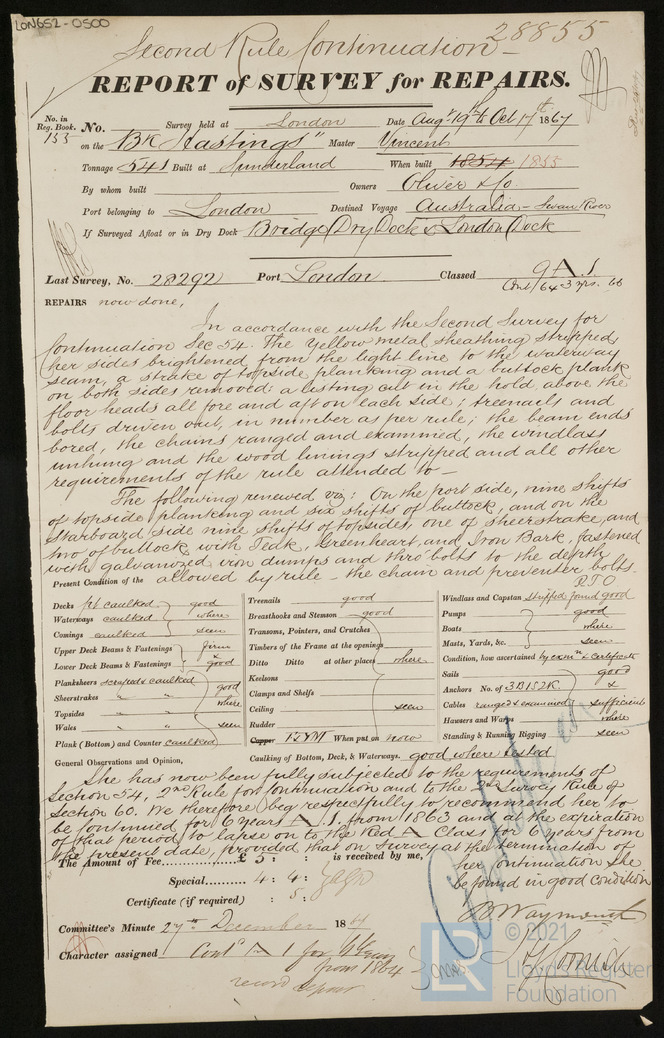 LON652-0500
Second Rule Continuation - 28855
REPORT of SURVEY for REPAIRS.
No. in Reg. Book. 153 No. Survey held at London Date Aug 19th to Oct 17th 1867
on the "Bk Hastings" Master Vincent
Tonnage 541 Built at Sunderland When built 1854 1855
By whom built Owners Oliver & Co
Port belonging to London Destined Voyage Australia - Swan River
If Surveyed Afloat or in Dry Dock Bridge Dry Dock & London Dock
Last Survey, No. 28292 Port London Classed 9 A.1
Cont/64 3 yrs. 66
REPAIRS now done,
In accordance with the Second Survey for
Continuation Sec 54. The yellow metal sheathing stripped,
her sides brightened from the light line to the waterway
seam, a strake of topside planking and a buttock plank
on both sides removed; a listing cut in the hold above the
floor heads all fore and aft on each side; treenails and
bolts driven out, in number as per rule; the beam ends
bored, the chains ranged and examined, the windlass
unhung and the wood linings stripped and all other
requirements of the rule attended to -
The following renewed viz: On the port side, nine shifts
of topside planking and six shifts of buttock, and on the
starboard side nine shifts of topsides, one of sheerstrake, and
two of buttock with Teak, Greenheart, and Iron Bark, fastened
with galvanized iron dumps and thro' bolts to the depth
Present Condition of the allowed by rule - the chain and preventer bolts.
PTO
Decks pt caulked good
Waterways caulked where
Comings caulked seen
Upper Deck Beams & Fastenings firm
Lower Deck Beams & Fastenings & good
Planksheers scraped & caulked good
Sheerstrakes " " where
Topsides " "
Wales " " seen
Plank (Bottom) and Counter caulked
Treenails good
Breasthooks and Stemson good
Transoms, Pointers, and Crutches
Timbers of the Frame at the openings
Ditto Ditto at other places where
Keelsons
Clamps and Shelfs
Ceiling seen
Rudder
Copper FFYM When put on now
Windlass and Capstan stripped found good
Pumps good
Boats where
Masts, Yards, &c. seen
Condition, how ascertained by exmn & Certificate
Sails good
Anchors No. of 3B 1S 2K. &
Cables ranged & examined sufficient
Hawsers and Warps where
Standing & Running Rigging seen
General Observations and Opinion, Caulking of Bottom, Deck, & Waterways. good where tested
She has now been fully subjected to the requirements of
Section 54, 2nd Rule for Continuation and to the 2nd Survey Rule of
Section 60. We therefore beg respectfully to recommend her to
be continued for 6 years A.1. from 1863 and at the expiration
of that period, to lapse on to the Red A Class for 6 years from
the present date, provided that on survey at the termination of
her continuation she
be found in good condition
The Amount of Fee £ 5 : : is received by me,
Special 4 : 4 :
Certificate (if required) : 5 :
B Waymouth
Committee's Minute 27th December 18
Character assigned Cont A 1 for 6 Years
from 1864
record
© 2021
Lloyd's Register
Foundation
LR